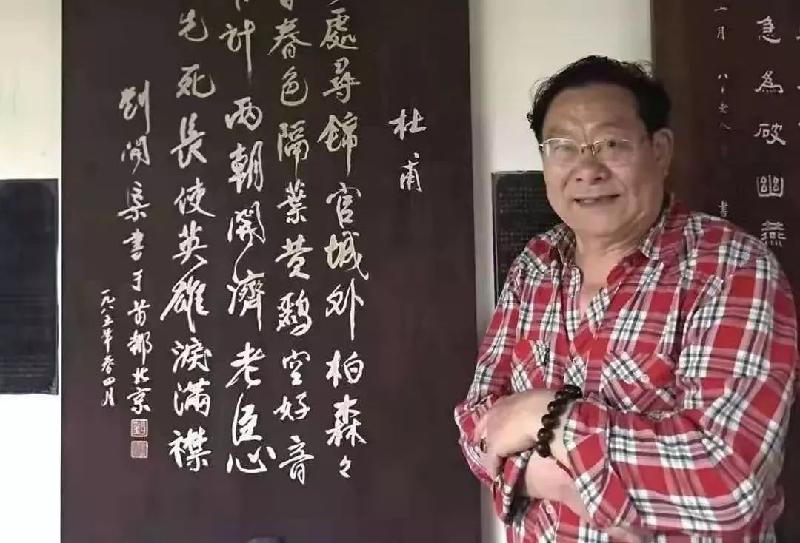 急為破幽燕
杜甫
處尋錦官城外柏森々
春色隔葉黄鸝空好音
計兩朝開濟老臣心
先死長使英雄淚滿襟
劉開渠書于首都北京
一九八五年春四月